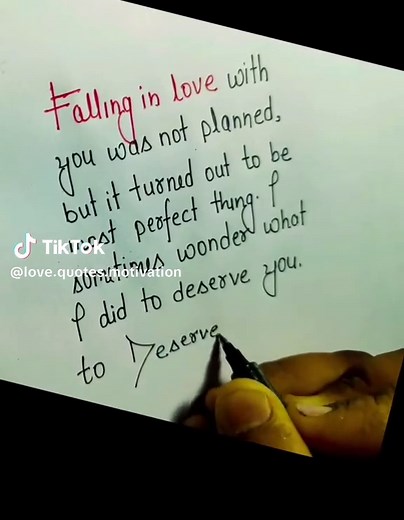 Falling in love with
you was not planned,
but it turned out to be
most perfect thing. I
sometimes wonder what
I did to deserve you.
to Deserve
TikTok
@love.quotes.motivation